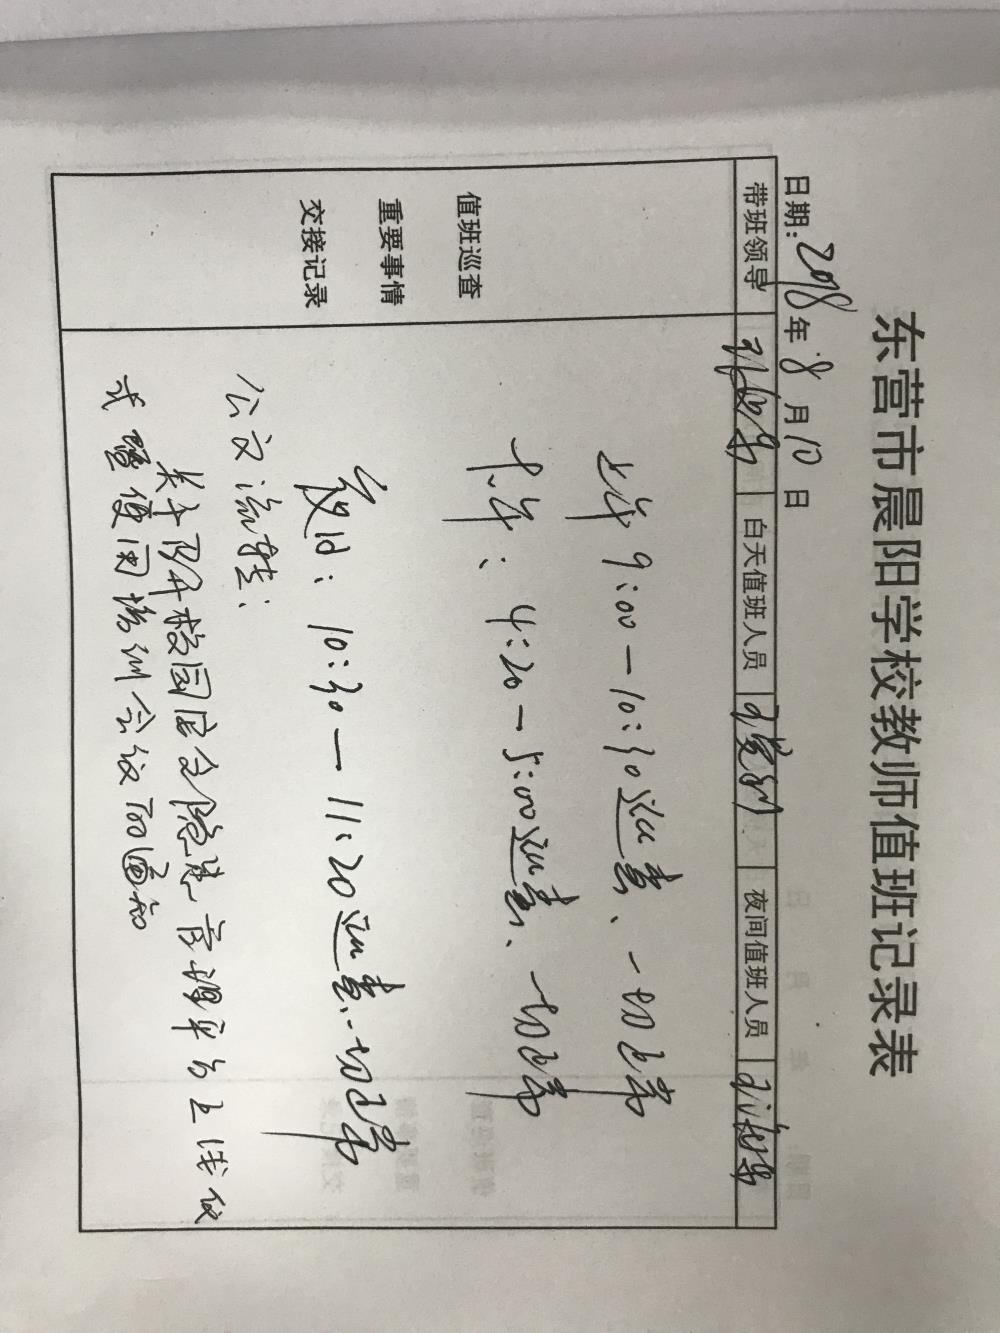 东营市晨阳学校教师值班记录表
日期: 2018 年 8 月 10 日
带班领导 白天值班人员 夜间值班人员
值班巡查
重要事情
交接记录
上午 9:00—10:30 巡查、一切正常
下午: 4:20—5:00 巡查、一切正常
夜间: 10:30—11:20 巡查、一切正常
公文流转:
关于召开校园安全隐患 平台上线仪
式暨使用培训会议的通知